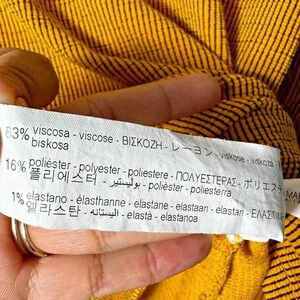 83% viscosa - viscose - ΒΙΣΚΟΖΗ - レーヨン - viskose - viskoza
biskosa
16% poliéster - polyester - poliestere - ΠΟΛΥΕΣΤΕΡΑΣ - ポリエステ
폴리에스터 - بوليستير - polièster - poliesterra
1% elastano - élasthanne - elastane - elastaan - elastan - ΕΛΑΣΤ
엘라스탄 - الياستانه - elastà - elastanoa
MA